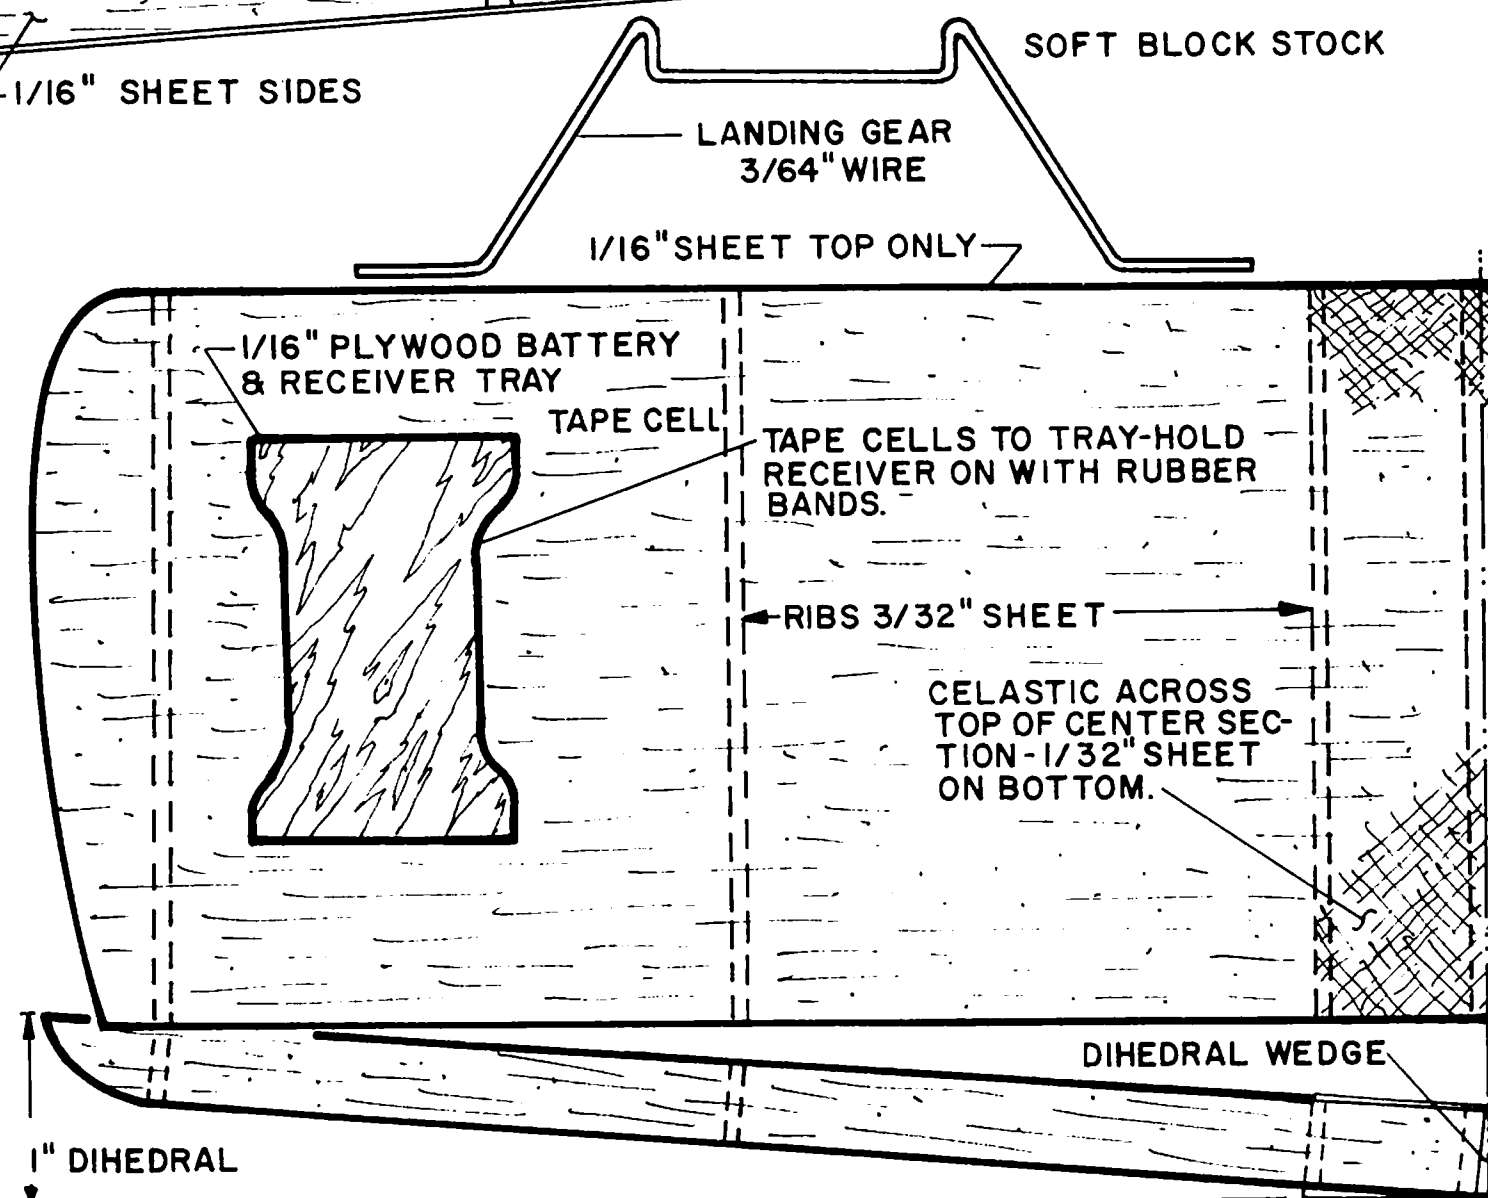 SOFT BLOCK STOCK
1/16" SHEET SIDES
LANDING GEAR
3/64" WIRE
1/16" SHEET TOP ONLY
1/16" PLYWOOD BATTERY
& RECEIVER TRAY
TAPE CELL
TAPE CELLS TO TRAY-HOLD
RECEIVER ON WITH RUBBER
BANDS.
RIBS 3/32" SHEET
CELASTIC ACROSS
TOP OF CENTER SEC-
TION-1/32" SHEET
ON BOTTOM.
DIHEDRAL WEDGE
1" DIHEDRAL